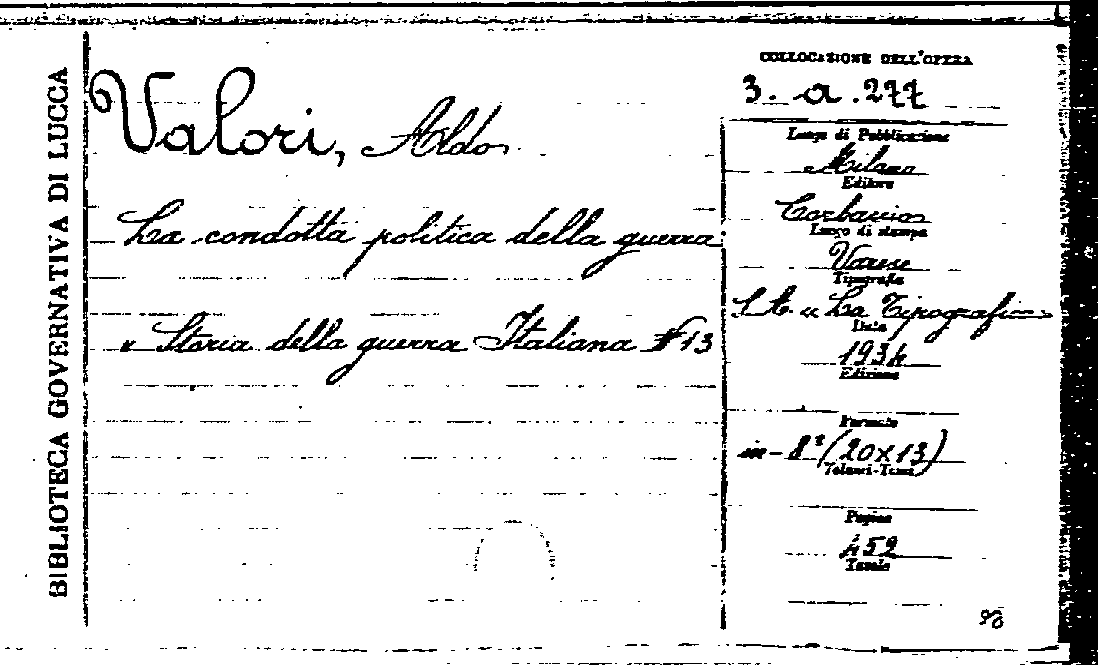 BIBLIOTECA GOVERNATIVA DI LUCCA
Valori, Aldo
La condotta politica della guerra
« Storia della guerra Italiana 13
COLLOCAZIONE DELL'OPERA
3. a. 277
Luogo di Pubblicazione
Milano
Editore
Corbaccio
Luogo di stampa
Varese
Tipografia
S. A. « La Tipografica
Data
1934
Edizione
Formato
in-8° (20x13)
Volumi-Tomi
Pagine
459
Tavole